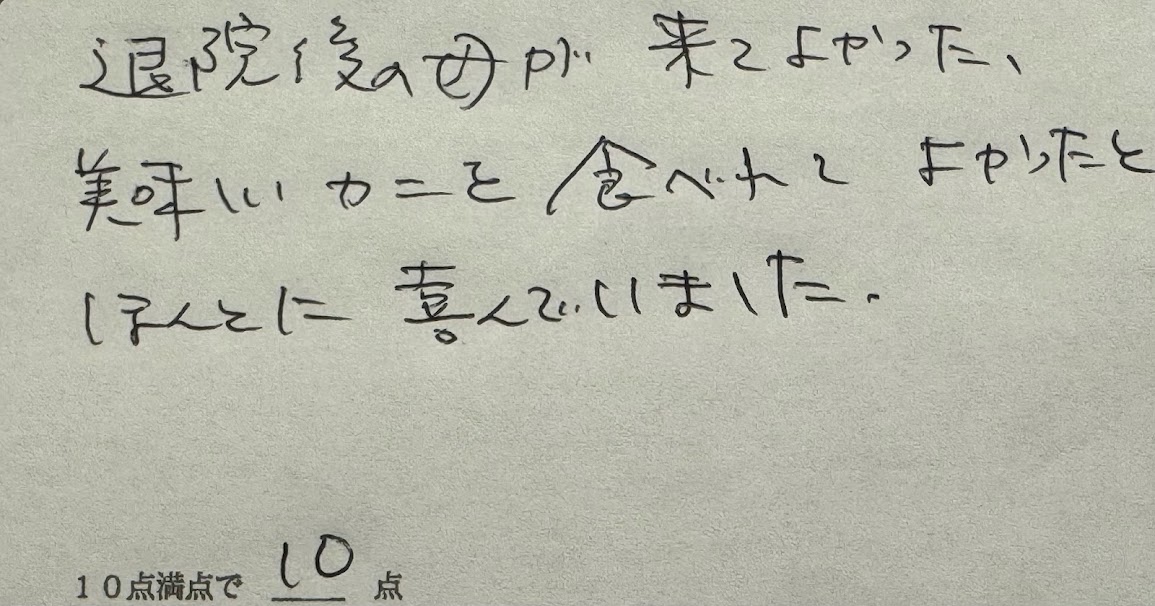 退院後の母が 来てよかった、
美味しいカニを食べれて よかったと
ほんとに 喜んでいました。
10点満点で 10 点